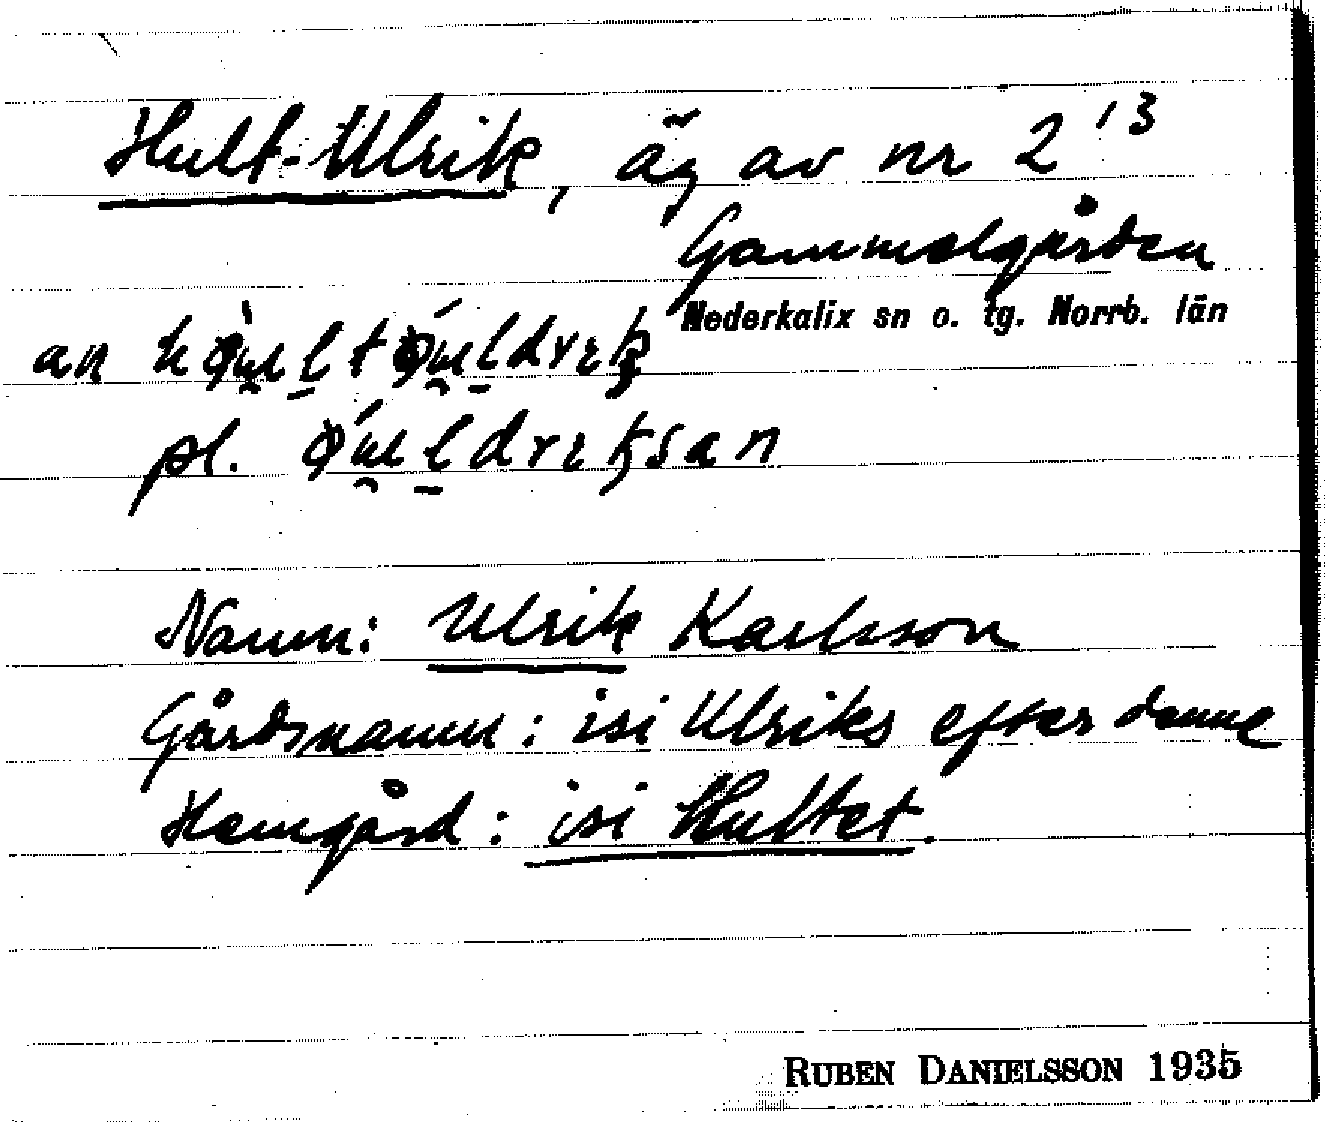 Hult-Ulrik, äg av nr 2¹³
Gammelgården
Nederkalix sn o. tg. Norrb. län
an
pl.
Namn: Ulrik Karlsson
Gårdsnamn: isi Ulriks efter denne
Hemgård: isi Hultet.
RUBEN DANIELSSON 1935